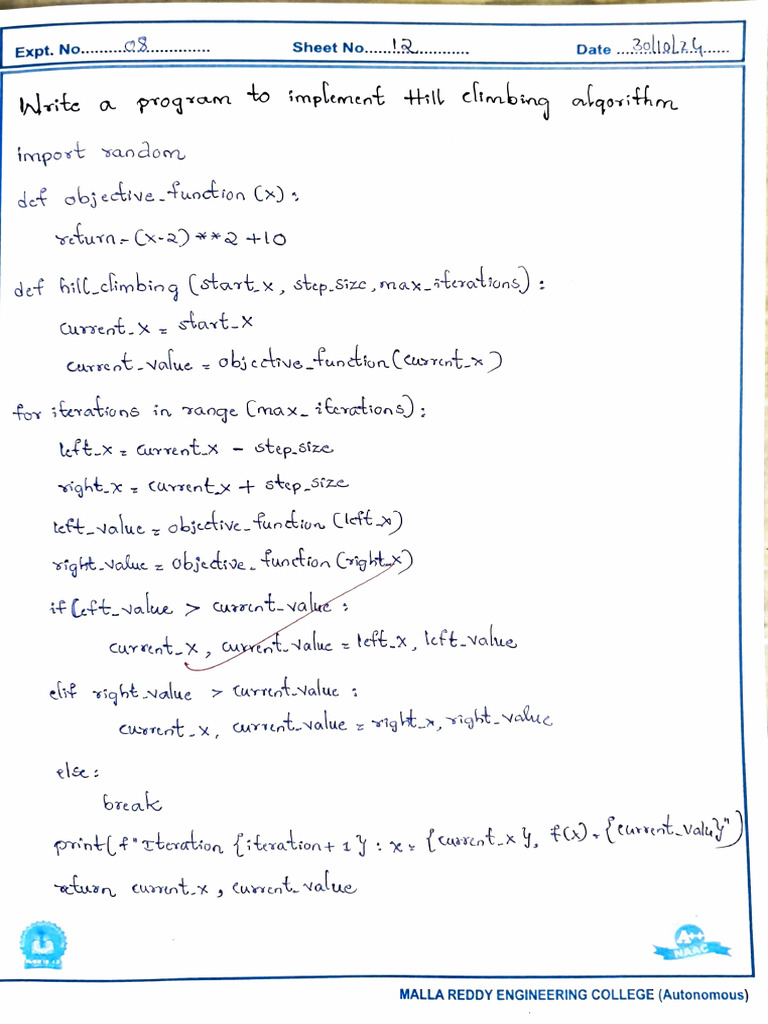 Expt. No..........08.............. Sheet No......12........... Date ....30/10/24......
Write a program to implement Hill climbing algorithm
import random
def objective_function (x):
return - (x-2) **2 +10
def hill_climbing (start_x, step_size, max_iterations):
current_x = start_x
current_value = objective_function (current_x)
for iterations in range (max_iterations):
left_x = current_x - step_size
right_x = current_x + step_size
left_value = objective_function (left_x)
right_value = objective_function (right_x)
if left_value > current_value:
current_x, current_value = left_x, left_value
elif right_value > current_value:
current_x, current_value = right_x, right_value
else:
break
print(f"Iteration {iteration+1}: x = {current_x}, f(x) = {current_value}")
return current_x, current_value
A++
NAAC
MALLA REDDY ENGINEERING COLLEGE (Autonomous)